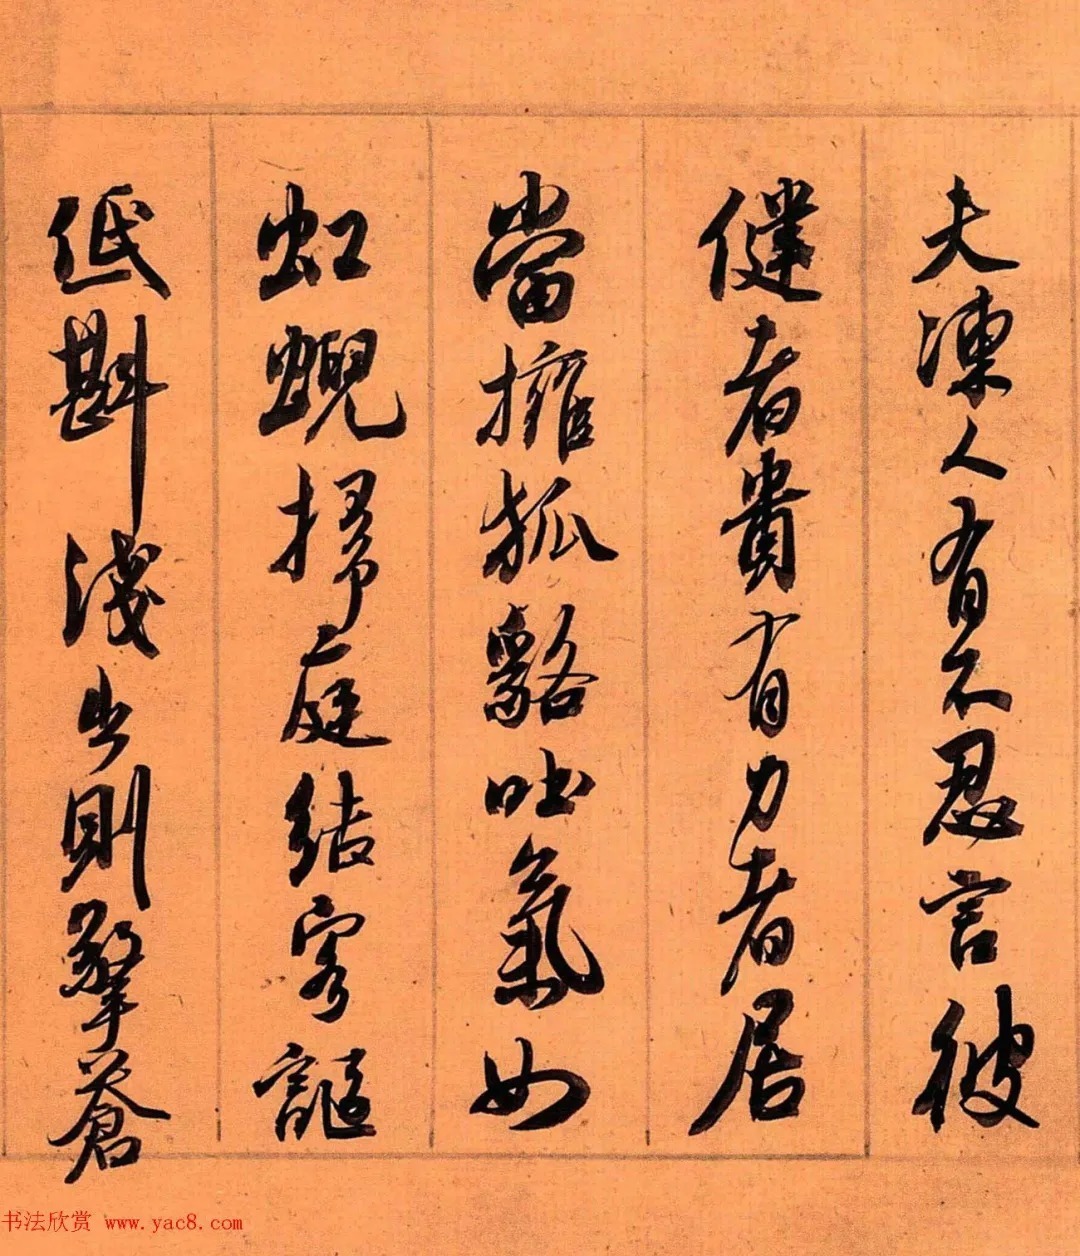 夫凍人有不忍言彼
健者貴有力者居
當擁狐貉吐氣如
虹蜺掃庭結客謳
低斟淺出則擎蒼
书法欣赏 www.yac8.com